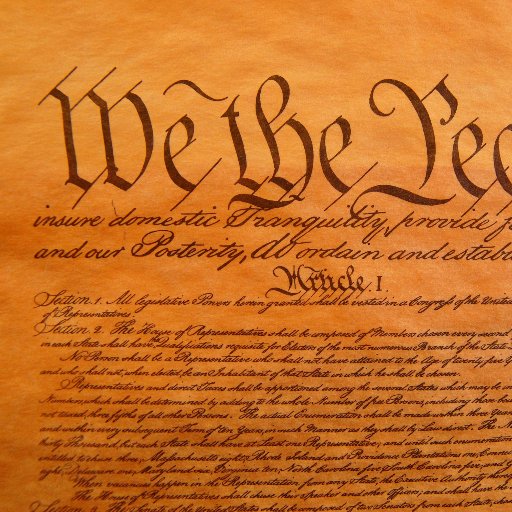 We the Peo
insure domestic Tranquility, provide f
and our Posterity, do ordain and establ
Article. I.
Section 1. All legislative Powers herein granted shall be vested in a Congress of the United
of Representatives
Section 2. The House of Representatives shall be composed of Members chosen every second
in each State shall have Qualifications requisite for Elector of the most numerous Branch of the State
No Person shall be a Representative who shall not have attained to the Age of twenty five Y
and who shall not, when elected, be an Inhabitant of that State in which he shall be chosen.
Representatives and direct Taxes shall be apportioned among the several States which may be in
Numbers, which shall be determined by adding to the whole Number of free Persons, including those bou
not taxed, three fifths of all other Persons. The actual Enumeration shall be made within three Years
and within every subsequent Term of ten Years, in such Manner as they shall by Law direct. The N
thirty Thousand, but each State shall have at Least one Representative; and until such enumeration
entitled to chuse three, Massachusetts eight, Rhode Island and Providence Plantations one, Connec
eight, Delaware one, Maryland six, Virginia ten, North Carolina five, South Carolina five, and G
When vacancies happen in the Representation from any State, the Executive Authority thereof
The House of Representatives shall chuse their Speaker and other Officers; and shall have the
Section. 3. The Senate of the United States shall be composed of two Senators from each State, chose